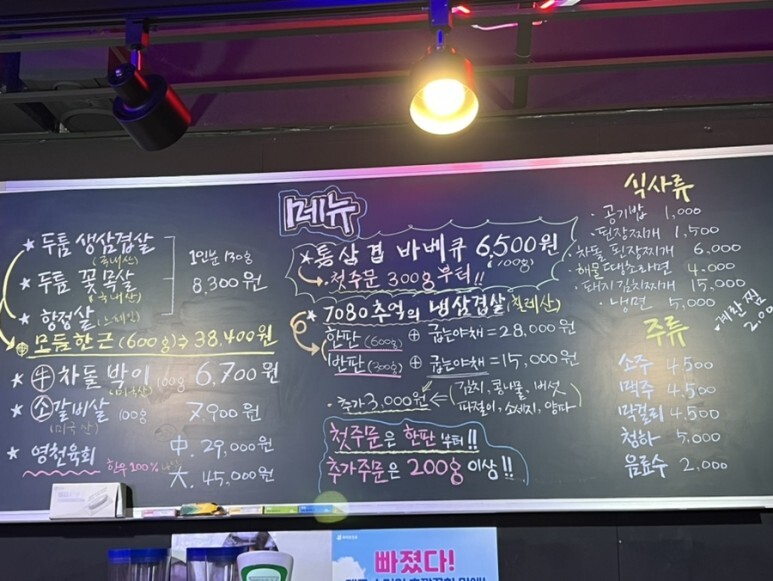 메뉴
★ 두툼 생삼겹살
(국내산)
★ 두툼 꽃목살
(국내산)
★ 항정살 (스페인)
1인분 130g
8,300원
⊕ 모듬한근 (600g) ⇒ 38,400원
★ 牛 차돌박이 100g 6,700원
(미국산)
★ 소 갈비살 100g 7,900원
(미국산)
★ 영천육회 中. 29,000원
한우 100%
大. 45,000원
★ 통삼겹 바베큐 6,500원
(100g)
첫주문 300g 부터!!
★ 7080 추억의 냉삼겹살 (칠레산)
한판 (600g) ⊕ 굽는야채 = 28,000원
반판 (300g) ⊕ 굽는야채 = 15,000원
· 추가 3,000원 ⇐ (김치, 콩나물, 버섯
파절이, 소세지, 양파)
첫주문은 한판 부터!!
추가주문은 200g 이상!!
식사류
· 공기밥 1,000
· 된장찌개 1,500
· 차돌 된장찌개 6,000
· 해물 라면 4.000
· 돼지 김치찌개 15,000
· 냉면 5,000
· 계란찜
2,000
주류
소주 4,500
맥주 4,500
막걸리 4,500
청하 5,000
음료수 2,000
빠졌다!